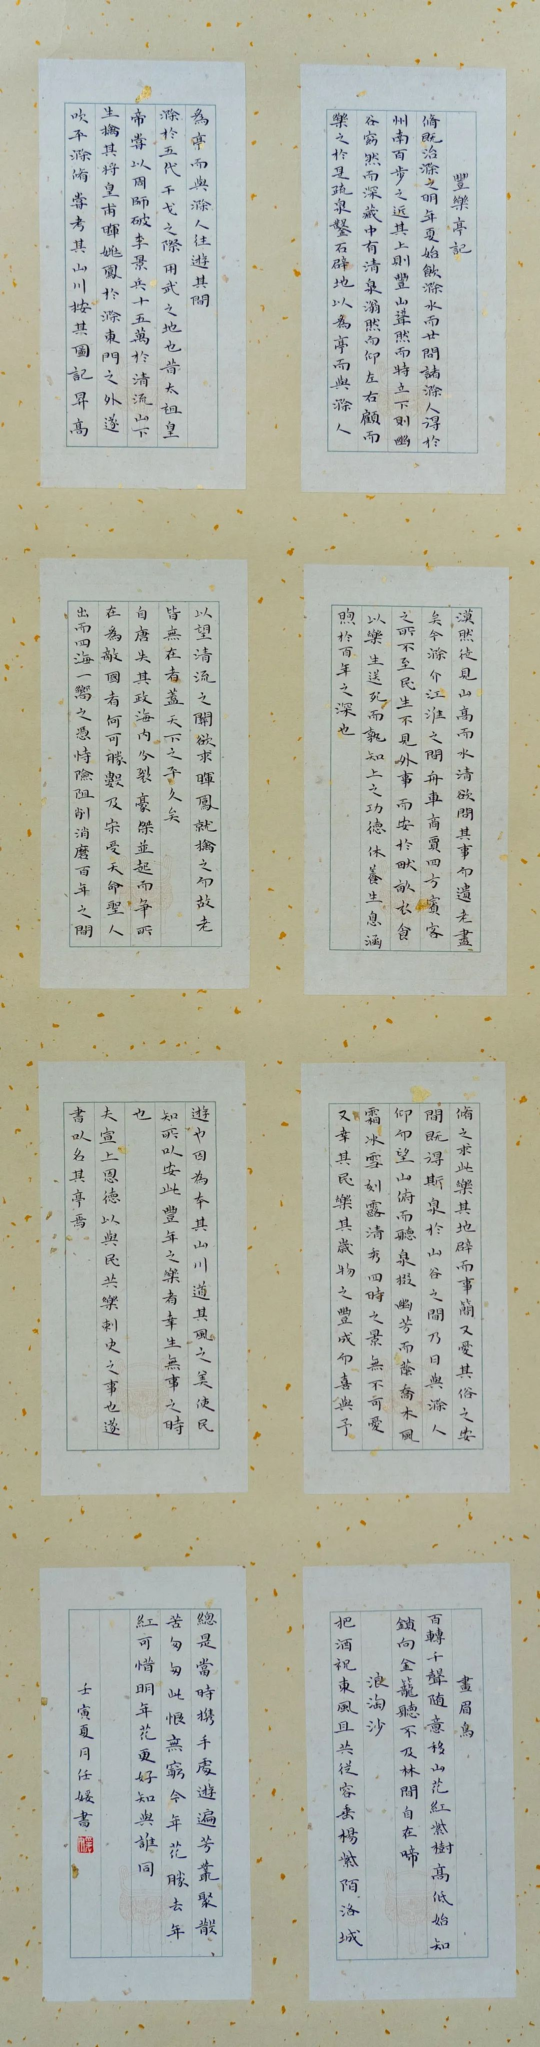 豐樂亭記
脩既治滁之明年夏始飲滁水而甘問諸滁人得於
州南百步之近其上則豐山聳然而特立下則幽
谷窈然而深藏中有清泉滃然而仰左右顧而
樂之於是疏泉鑿石辟地以為亭而與滁人
為亭而與滁人往遊其間
滁於五代干戈之際用武之地也昔太祖皇
帝嘗以周師破李景兵十五萬於清流山下
生擒其將皇甫暉姚鳳於滁東門之外遂
以平滁脩嘗考其山川按其圖記昇高
漠然徒見山高而水清欲問其事而遺老盡
矣今滁介江淮之間舟車商賈四方賓客
之所不至民生不見外事而安於畎畝衣食
以樂生送死而孰知上之功德休養生息涵
煦於百年之深也
以望清流之關欲求暉鳳就擒之所故老
皆無在者蓋天下之平久矣
自唐失其政海內分裂豪傑並起而爭所
在為敵國者何可勝數及宋受天命聖人
出而四海一嚮之憑恃險阻削消磨百年之間
脩之求此樂其地辟而事簡又愛其俗之安
閒既得斯泉於山谷之間乃日與滁人
仰而望山俯而聽泉掇幽芳而蔭喬木風
霜冰雪刻露清秀四時之景無不可愛
又幸其民樂其歲物之豐成而喜與予
遊也因為本其山川道其風之美使民
知所以安此豐年之樂者幸生無事之時
也
夫宣上恩德以與民共樂刺史之事也遂
書以名其亭焉
畫眉鳥
百轉千聲隨意移山花紅紫樹高低始知
鎖向金籠聽不及林間自在啼
浪淘沙
把酒祝東風且共從容垂楊紫陌洛城
總是當時攜手處遊遍芳叢聚散
苦匆匆此恨無窮今年花勝去年
紅可惜明年花更好知與誰同
壬寅夏月任媛書